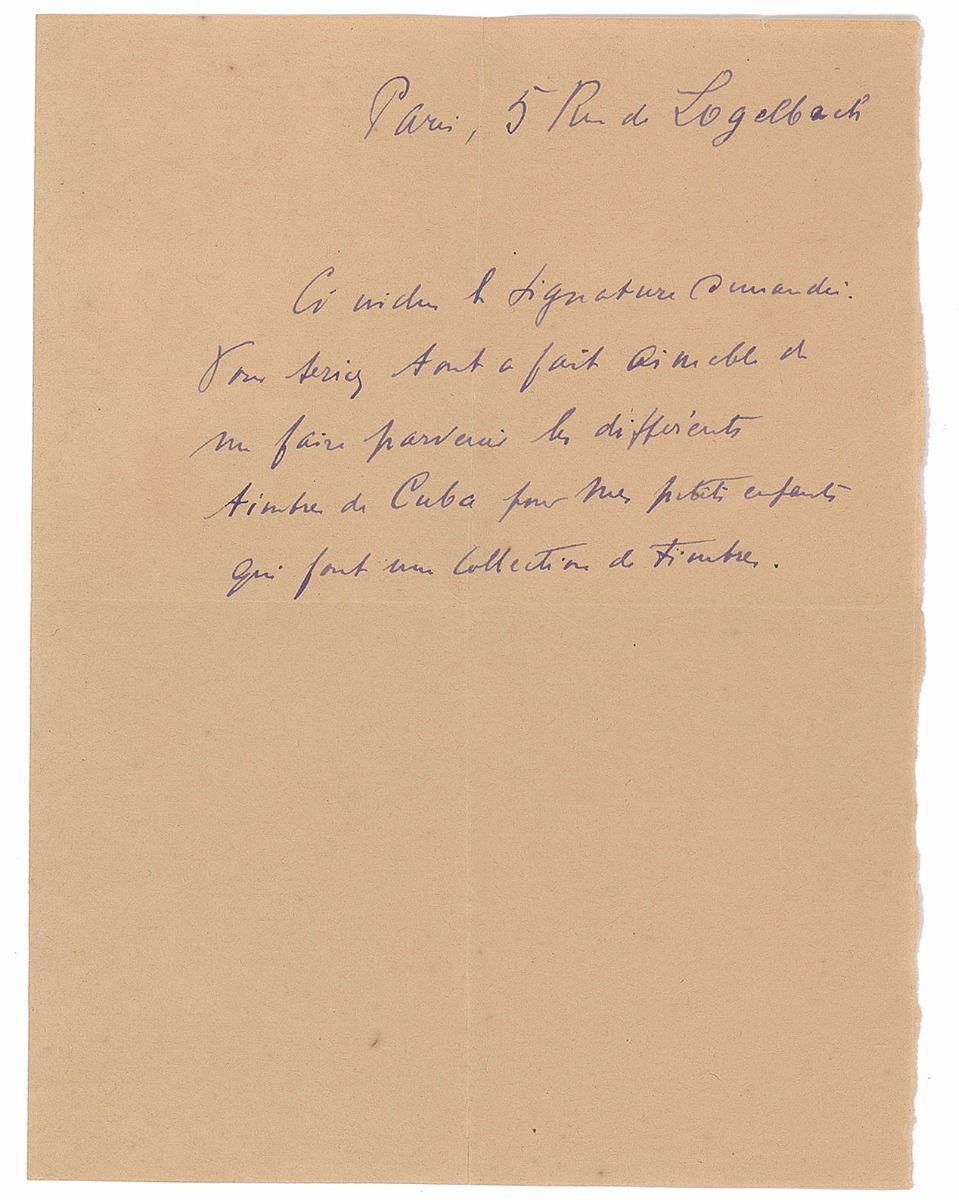 Paris, 5 Rue de Logelbach
Ci inclus la signature demandée.
Vous seriez tout a fait aimable de
me faire parvenir les différents
timbres de Cuba pour mes petits enfants
qui font une collection de timbres.